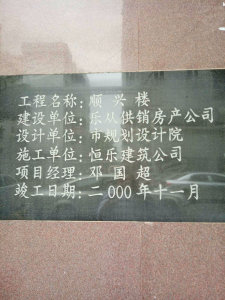 工程名称：顺兴楼
建设单位：乐从供销房产公司
设计单位：市规划设计院
施工单位：恒乐建筑公司
项目经理：邓国超
竣工日期：二000年十一月